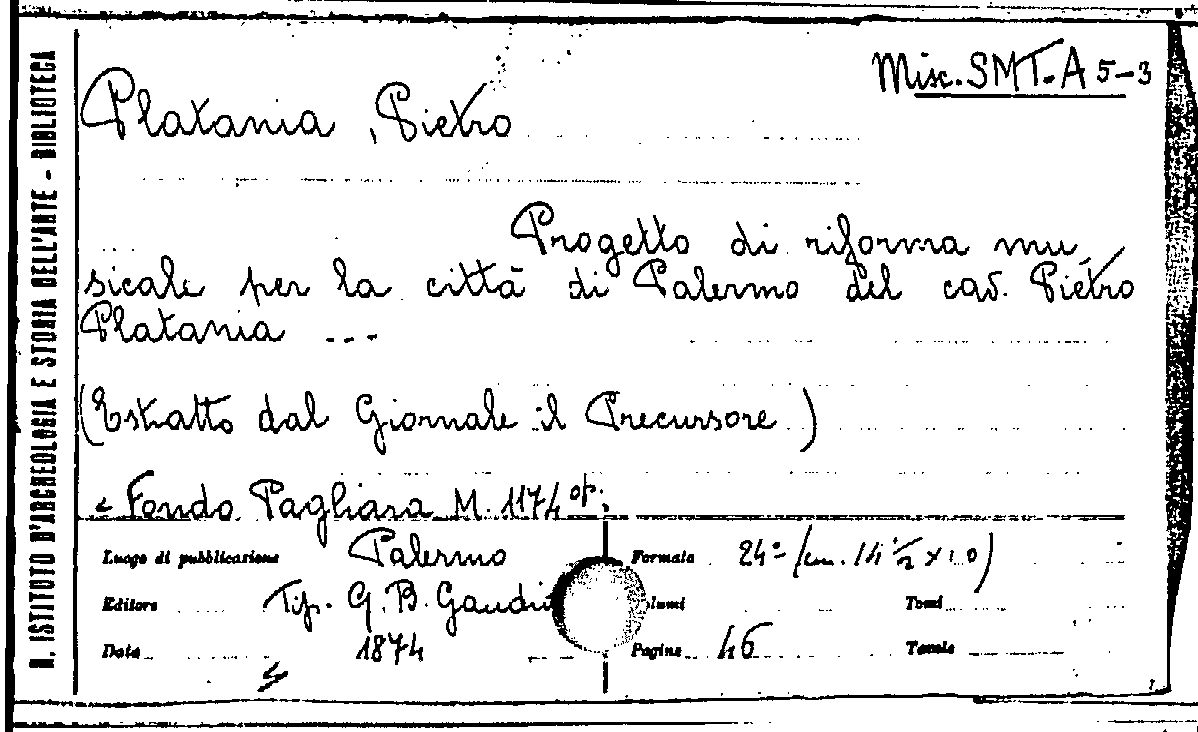 R. ISTITUTO D'ARCHEOLOGIA E STORIA DELL'ARTE - BIBLIOTECA
Misc. SMT-A 5-3
Platania, Pietro
Progetto di riforma mu
sicale per la città di Palermo del cav. Pietro
Platania ---
(Estratto dal Giornale il Precursore)
Fondo Pagliara M. 1174 op:
Luogo di pubblicazione Palermo
Formato 24° (cm. 14 ½ x 10)
Editore Tip. G. B. Gaudi
lumi
Tomi
Data 1874
Pagine 46
Tavole